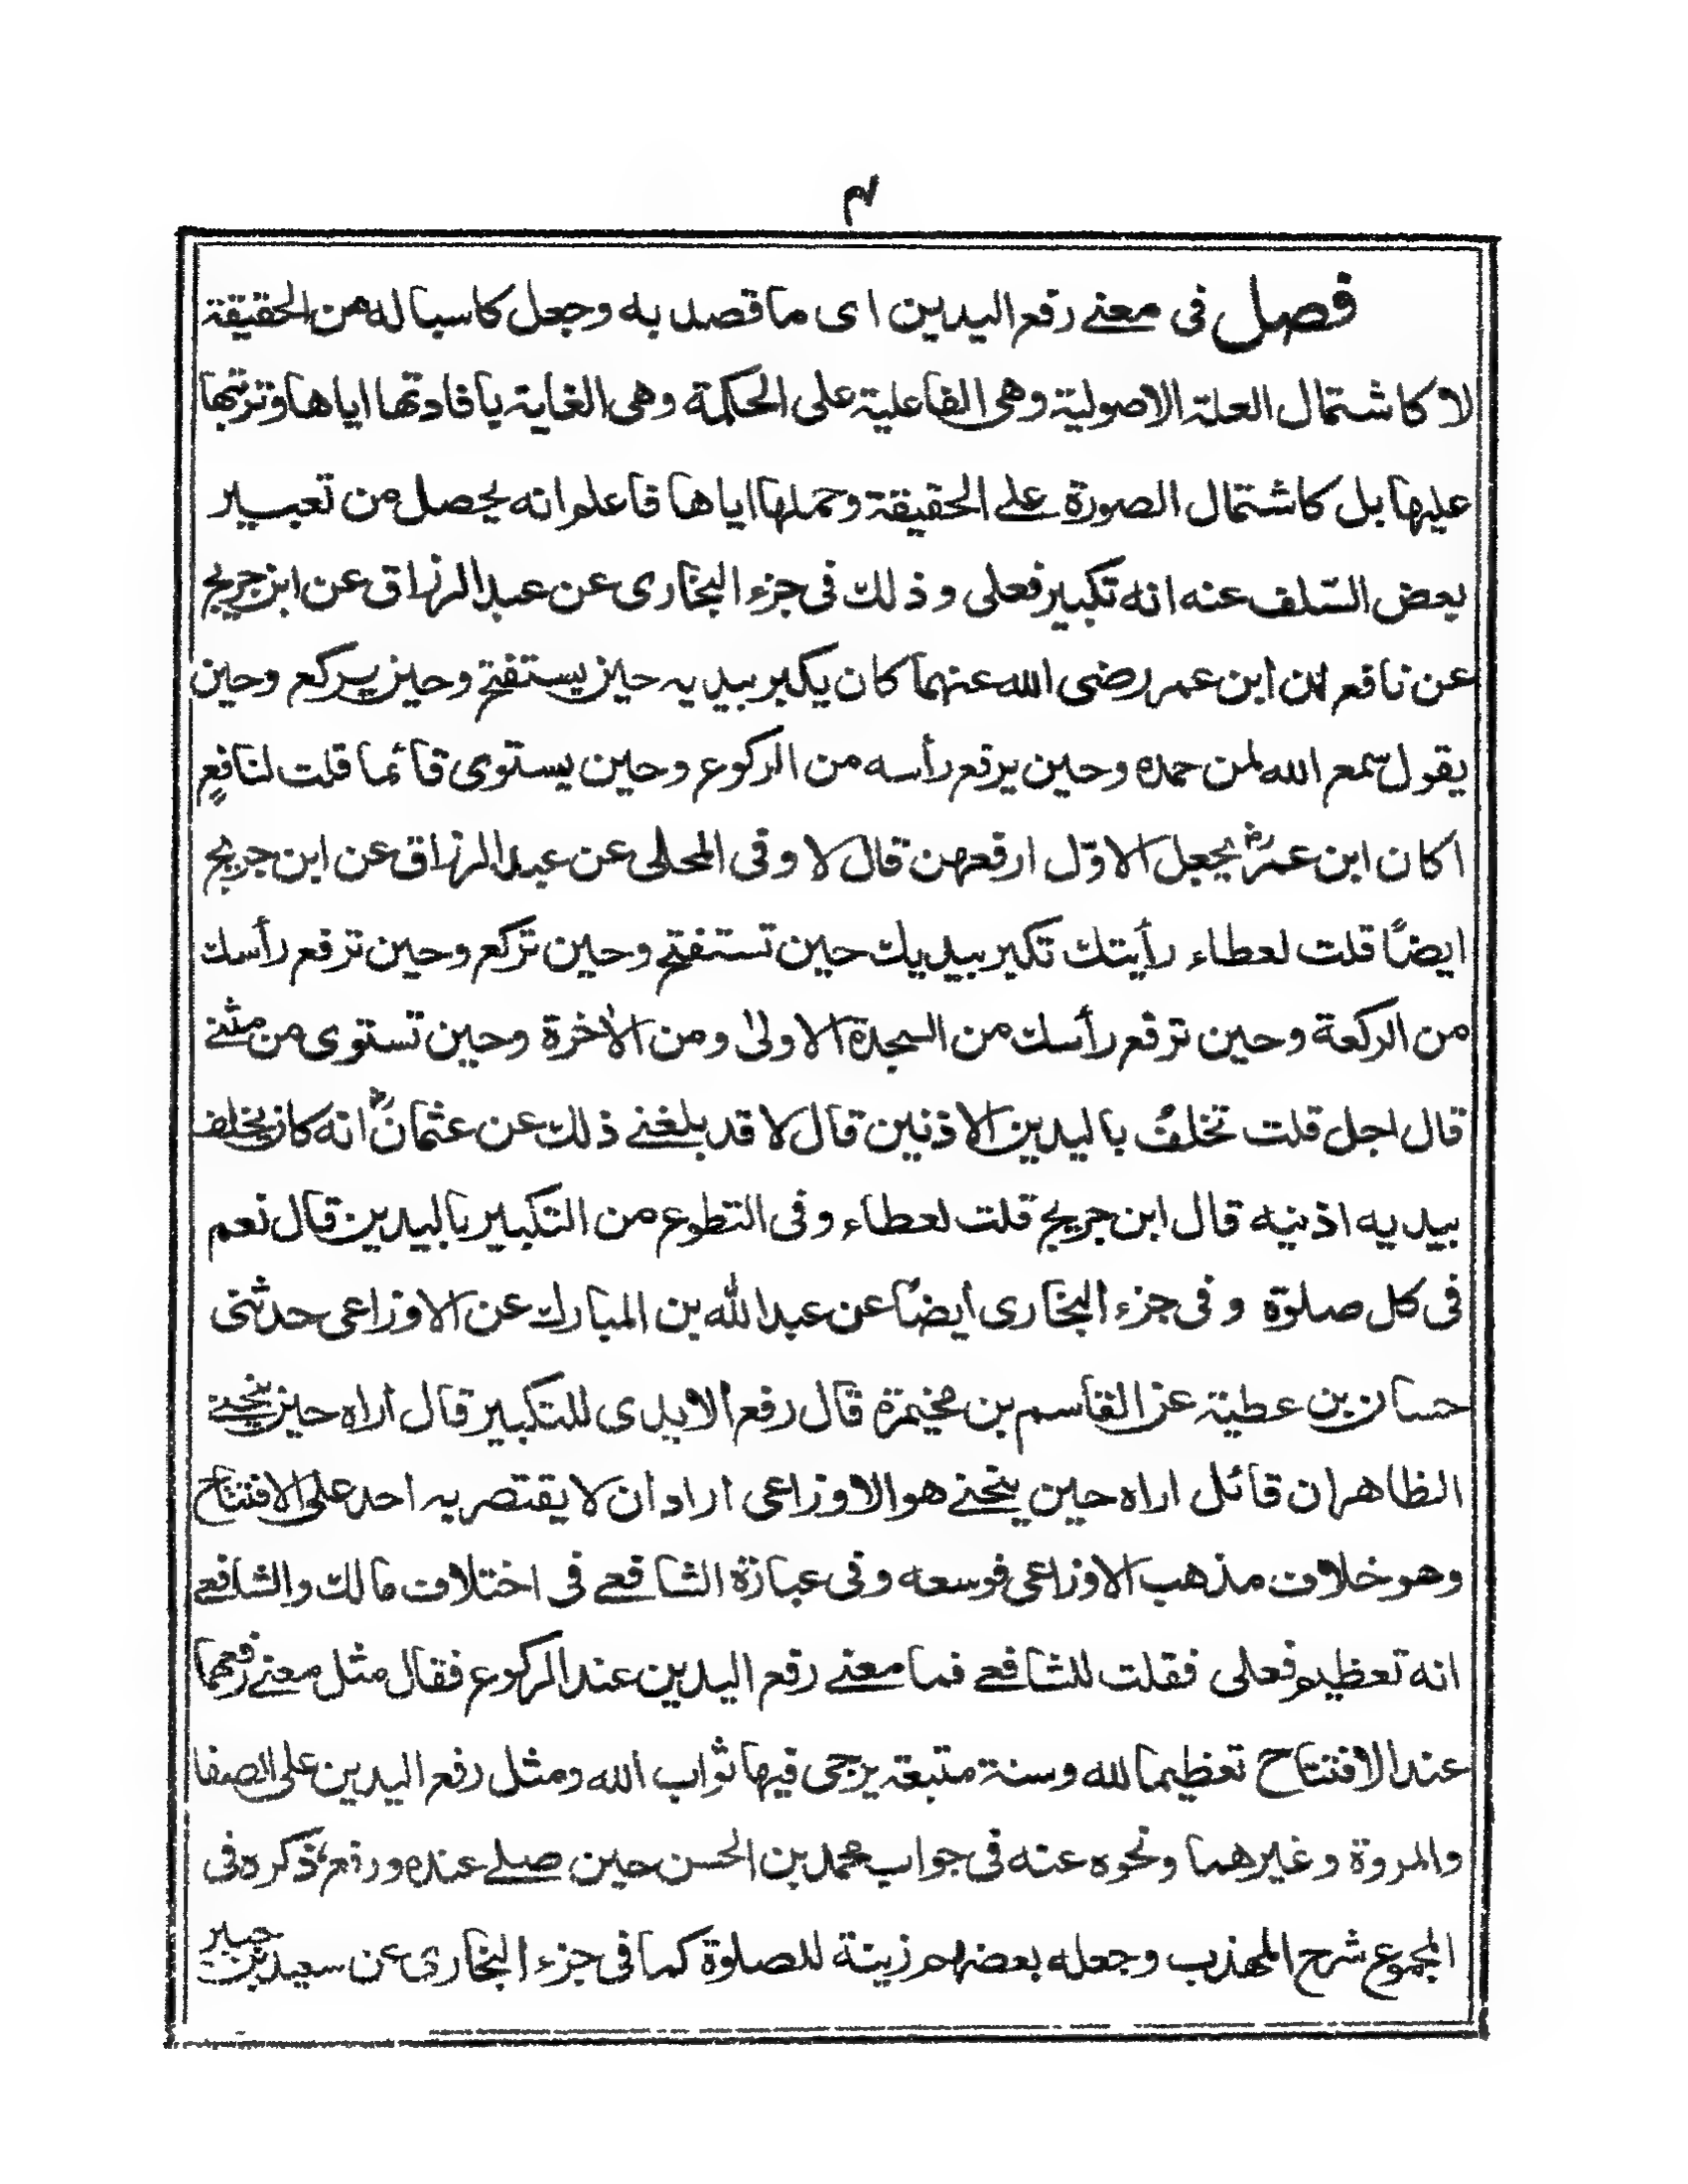 ۴
فصل فی معنے رفع الیدین ای ما قصد به وجعل کاسباله من الحقیقة
لا کاشتمال العلة الاصولیة وهی الفاعلیة علی الحکمة وهی الغایة یافادتها ایاها وترتبها
علیها بل کاشتمال الصورة علے الحقیقة وحملها ایاها فاعلم انه یحصل من تعبیر
بعض السّلف عنه انه تکبیر فعلی و ذلك فی جزء البخاری عن عبد الرزاق عن ابن جریج
عن نافع ان ابن عمر رضی الله عنهما کان یکبر بیدیه حین یستفتح وحین یرکع وحین
یقول سمع الله لمن حمده وحین یرفع رأسه من الرکوع وحین یستوی قائما قلت لنافع
اکان ابن عمرؓ یجعل الاوّل ارفعهن قال لا وفی المحلی عن عبد الرزاق عن ابن جریج
ایضاً قلت لعطاء رأیتك تکبر بیدیك حین تستفتح وحین ترکع وحین ترفع رأسك
من الرکعة وحین ترفع رأسك من السجدة الاولیٰ ومن الاٰخرة وحین تستوی من مثنے
قال اجل قلت تخلفُ بالیدین الاذنین قال لا قد بلغنے ذلك عن عثمانؓ انه کان یخلف
بیدیه اذنیه قال ابن جریج قلت لعطاء وفی التطوع من التکبیر بالیدین قال نعم
فی کل صلوة وفی جزء البخاری ایضاً عن عبد الله بن المبارك عن الاوزاعی حدثنی
حسان بن عطیة عن القاسم بن مخیمرة قال رفع الایدی للتکبیر قال اراه حین ینحنے
الظاهر ان قائل اراه حین ینحنے هو الاوزاعی اراد ان لا یقتصر به احد علی الافتتاح
وهو خلاف مذهب الاوزاعی فوسعه وفی عبارة الشافعے فی اختلاف مالك والشافعے
انه تعظیم فعلی فقلت للشافعے فما معنے رفع الیدین عند الرکوع فقال مثل معنے رفعهما
عند الافتتاح تعظیما لله وسنة متبعة یرجی فیها ثواب الله ومثل رفع الیدین علی الصفا
والمروة وغیرهما ونحوه عنه فی جواب محمد بن الحسن حین صلے عنده ورفع ذکره فی
المجموع شرح المهذب وجعله بعضهم زینة للصلوة کما فی جزء البخاری عن سعید بن جبیر